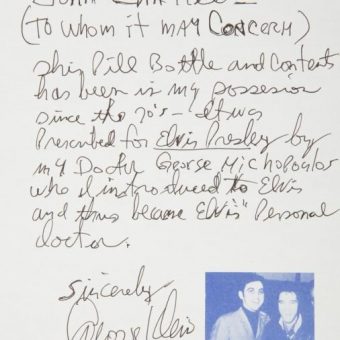 (TO WHOM IT MAY CONCERN)
This Pill Bottle and Contents
has been in my possesion
since the 70's – It was
Prescribed for Elvis Presley by
my Doctor George Nichopoulos
who I introduced to Elvis
and thus became Elvis' Personal
doctor.
Sincerely
George Klein